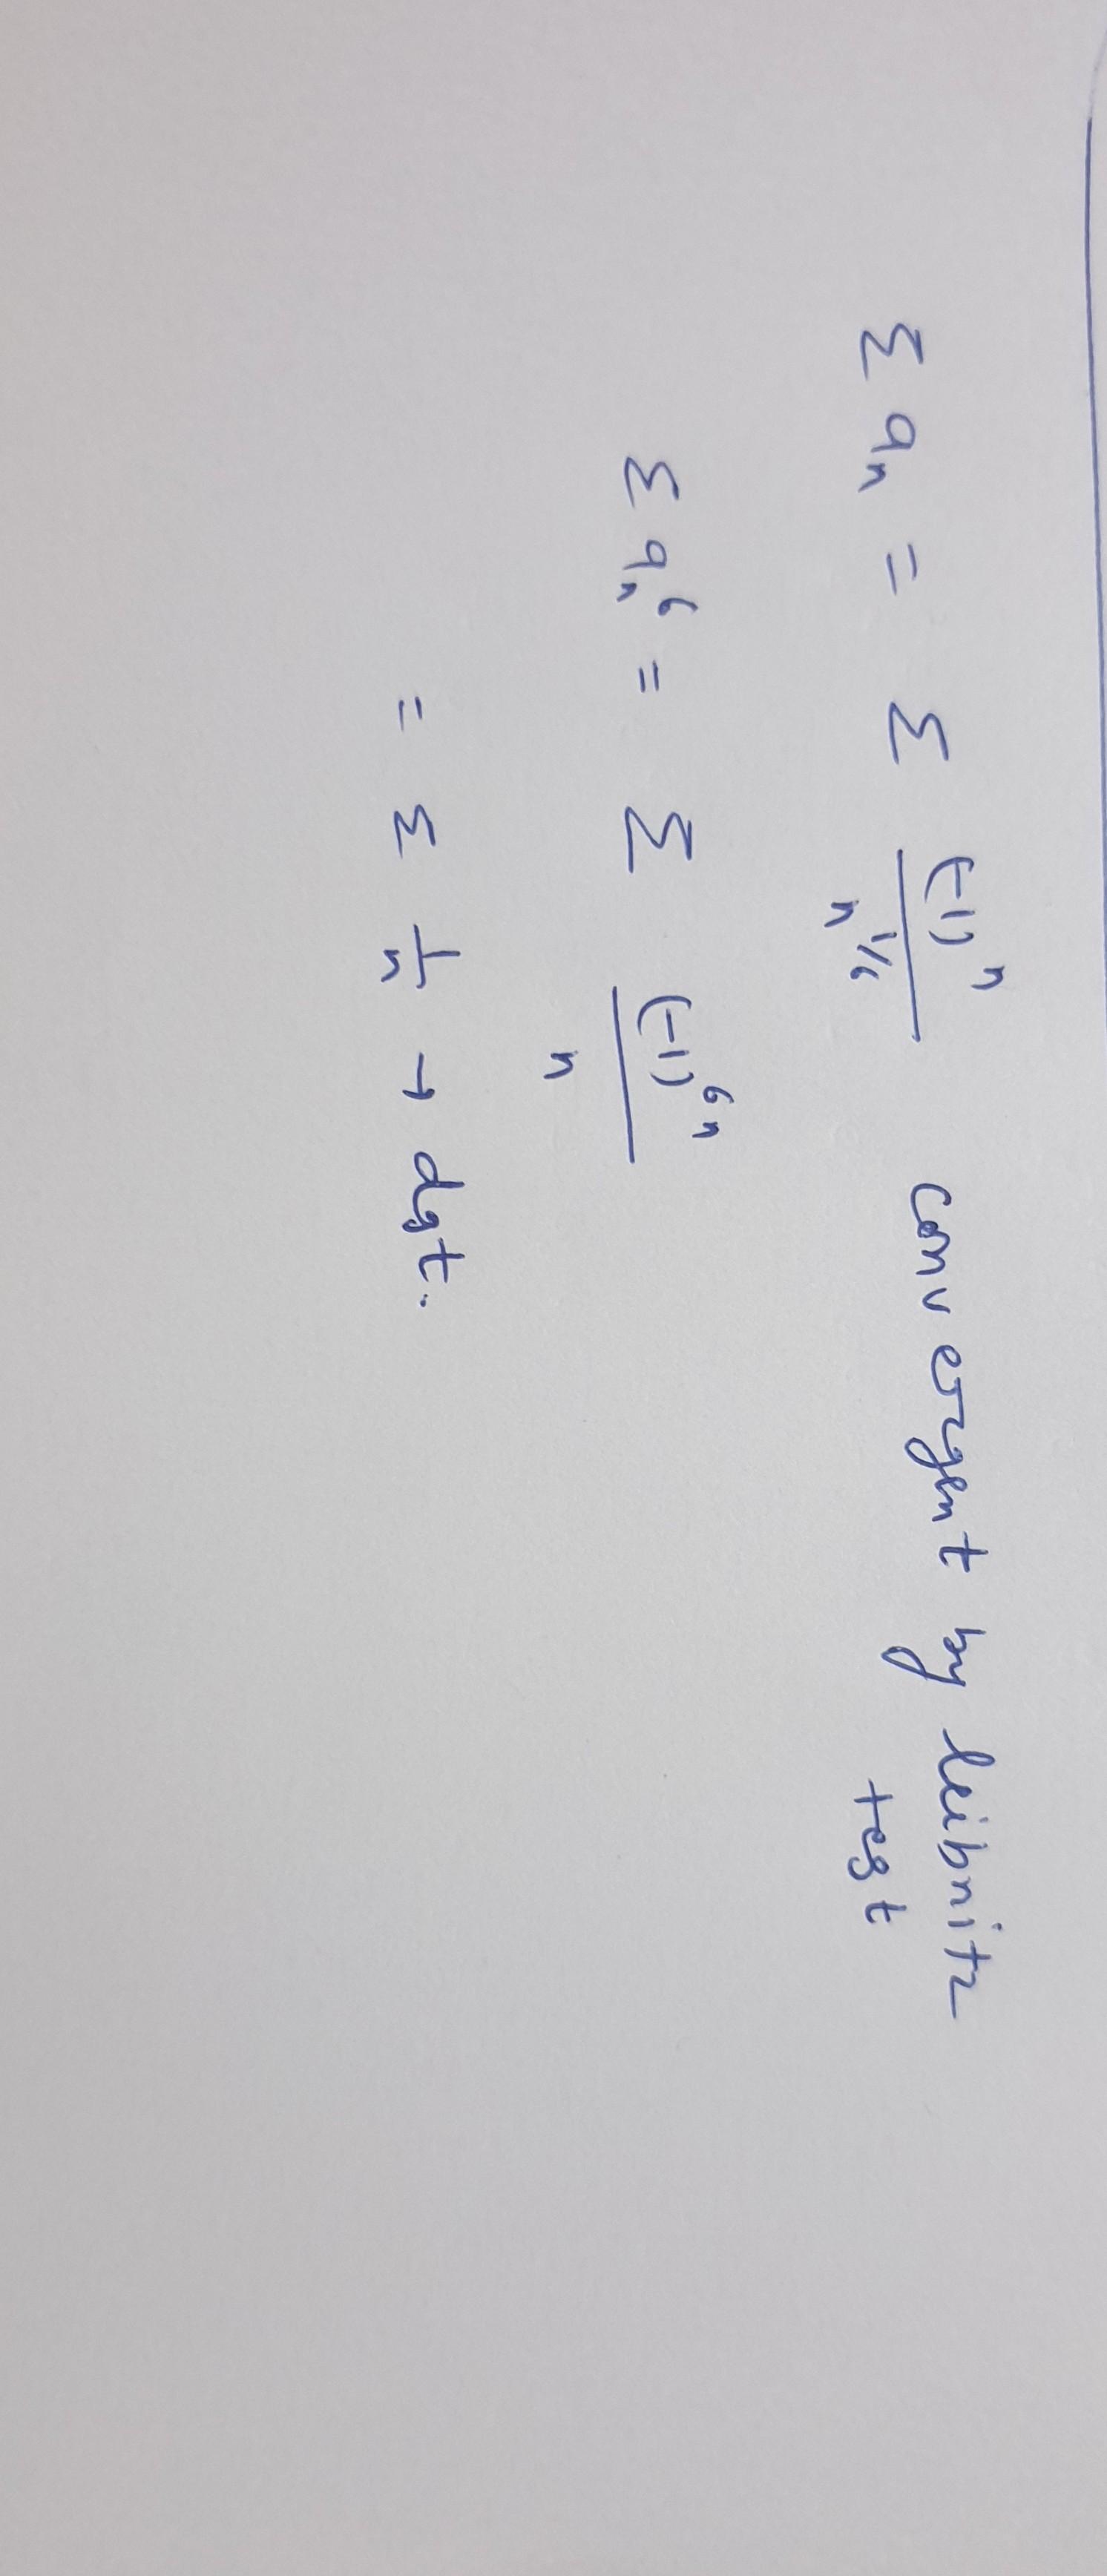 Σ aₙ = Σ (-1)ⁿ / n^{1/6} convergent by leibnitz
test
Σ aₙ⁶ = Σ (-1)^{6n} / n
= Σ 1/n → dgt.